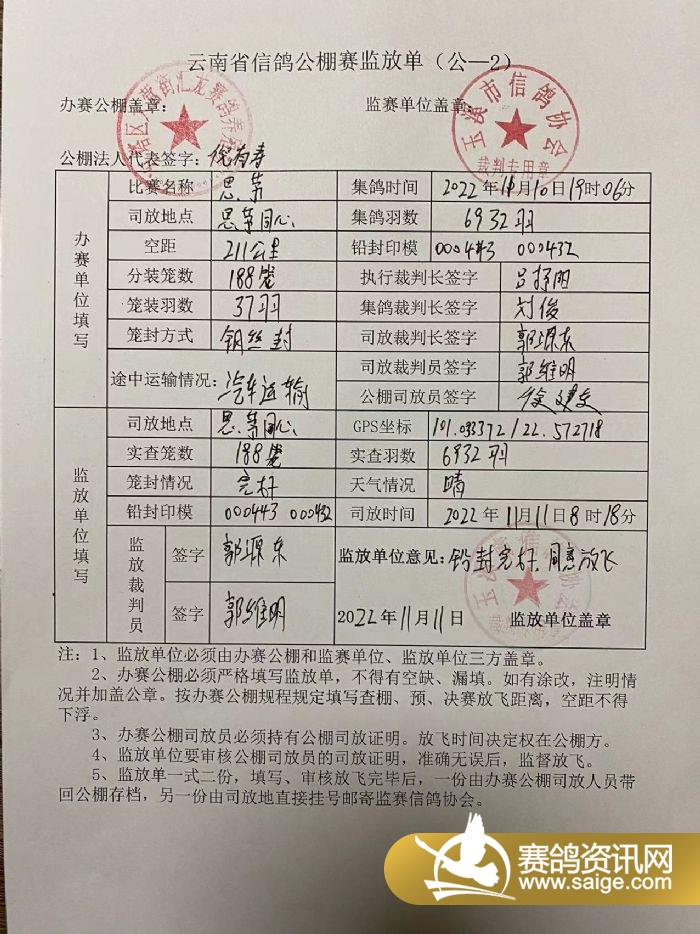 云南省信鸽公棚赛监放单（公—2）
办赛公棚盖章： 监赛单位盖章：
玉溪市信鸽协会
裁判专用章
公棚法人代表签字：倪有寿
办赛单位填写
比赛名称 思茅 集鸽时间 2022年11月10日19时06分
司放地点 思茅同心 集鸽羽数 6932羽
空距 211公里 铅封印模 000443 000432
分装笼数 188笼 执行裁判长签字
笼装羽数 37羽 集鸽裁判长签字 刘俊
笼封方式 钢丝封 司放裁判长签字 郭塬东
途中运输情况： 汽车运输 司放裁判员签字 郭维明
公棚司放员签字 徐建文
监放单位填写
司放地点 思茅同心 GPS坐标 101.033372/22.572718
实查笼数 188笼 实查羽数 6932羽
笼封情况 完好 天气情况 晴
铅封印模 000443 000432 司放时间 2022年11月11日8时18分
监放裁判员 签字 郭塬东 监放单位意见：铅封完好.同意放飞
签字 郭维明 2022年11月11日 监放单位盖章
注：1、监放单位必须由办赛公棚和监赛单位、监放单位三方盖章。
2、办赛公棚必须严格填写监放单，不得有空缺、漏填。如有涂改，注明情
况并加盖公章。按办赛公棚规程规定填写查棚、预、决赛放飞距离，空距不得
下浮。
3、办赛公棚司放员必须持有公棚司放证明。放飞时间决定权在公棚方。
4、监放单位要审核公棚司放员的司放证明，准确无误后，监督放飞。
5、监放单一式二份，填写、审核放飞完毕后，一份由办赛公棚司放人员带
回公棚存档，另一份由司放地直接挂号邮寄监赛信鸽协会。
赛鸽资讯网
www.saige.com